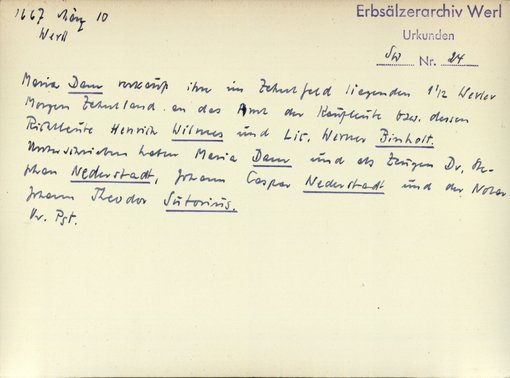 1667 März 10
Werl
Erbsälzerarchiv Werl
Urkunden
SW Nr. 24
Maria Dam verkauft ihre im Zehntfeld liegenden 1 1/2 Werler
Morgen Zehntland an das Amt der Kaufleute bzw. dessen
Richtleute Henrich Wilmes und Lic. Werner Binholt.
Unterschrieben haben Maria Dam und als Zeugen Dr. Ste-
phan Nederstadt, Johann Caspar Nederstadt und der Notar
Johann Theodor Sutorius.
Or. Pgt.